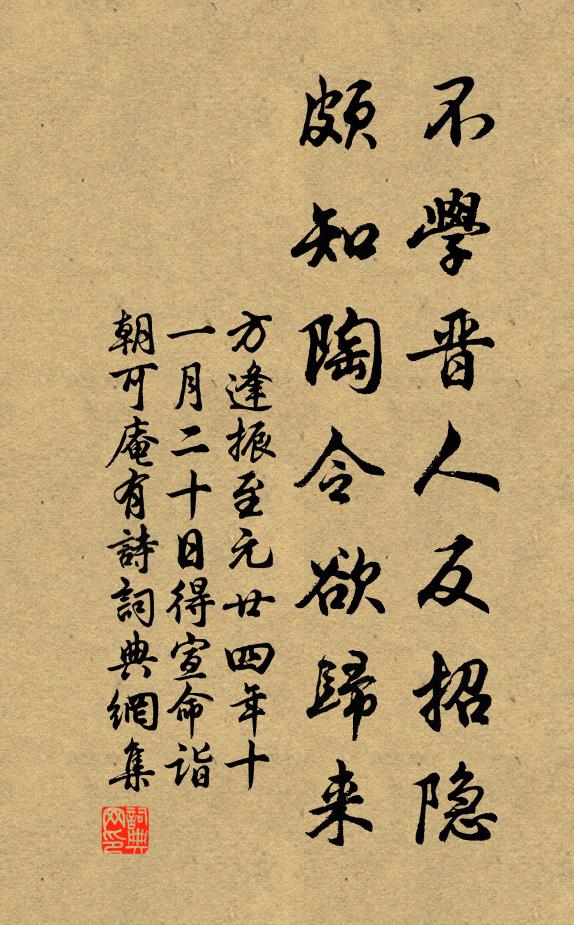 不學晋人反招隐
頗知陶令欲歸来
方逢振至元廿四年十
一月二十日得宣命詣
朝可庵有詩詞典網集
詞典网印